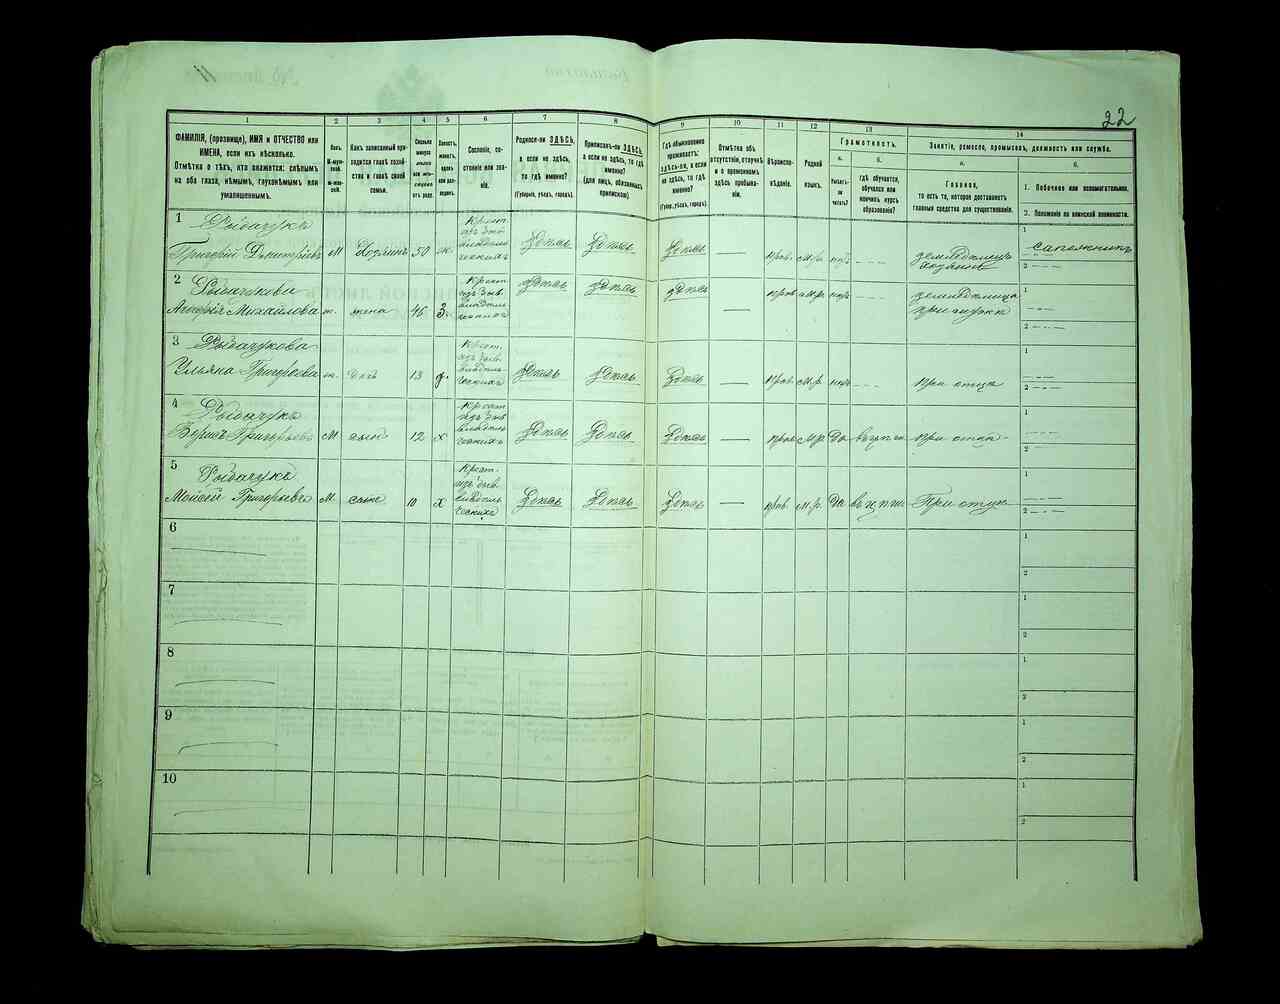 22
1
2
3
4
5
6
7
8
9
10
11
12
13
14
ФАМИЛІЯ, (прозвище), ИМЯ и ОТЧЕСТВО или
ИМЕНА, если ихъ нѣсколько.
Отмѣтка о тѣхъ, кто окажется: слѣпымъ
на оба глаза, нѣмымъ, глухонѣмымъ или
умалишеннымъ.
Полъ.
М-муж-
ской.
Ж-жен-
скій.
Какъ записанный при-
ходится главѣ хозяй-
ства и главѣ своей
семьи.
Сколько
минуло
лѣтъ
или мѣ-
сяцевъ
отъ роду.
Холостъ,
женатъ,
вдовъ
или раз-
веденъ.
Сословіе, со-
стояніе или зва-
ніе.
Родился-ли ЗДѢСЬ,
а если не здѣсь,
то гдѣ именно?
(Губернія, уѣздъ, городъ).
Приписанъ-ли ЗДѢСЬ,
а если не здѣсь, то гдѣ
именно?
(для лицъ, обязанныхъ
припискою).
Гдѣ обыкновенно
проживаетъ:
ЗДѢСЬ-ли, а если
не здѣсь, то гдѣ
именно?
(Губер., уѣздъ, городъ).
Отмѣтка объ
отсутствіи, отлучкѣ
и о временномъ
здѣсь пребыва-
ніи.
Вѣроиспо-
вѣданіе.
Родной
языкъ.
Грамотность.
а.
б.
Умѣетъ-
ли
читать?
гдѣ обучается,
обучался или
кончилъ курсъ
образованія?
Занятіе, ремесло, промыселъ, должность или служба.
а.
б.
Главное,
то есть то, которое доставляетъ
главныя средства для существованія.
1. Побочное или вспомогательное.
2. Положеніе по воинской повинности.
1
Рыбачукъ
Григорій Дмитріевъ М Хозяинъ 50 ж. Крест. изъ быв. владѣльческихъ Здѣсь Здѣсь Здѣсь прав. м.р. нѣтъ
земледѣлецъ
хозяинъ
1
2
2
Рыбачукова
Михайлова ж. жена 46 З. Крест. изъ быв. владѣльческихъ Здѣсь Здѣсь Здѣсь — прав. м.р. нѣтъ
1
2
3
Рыбачукова
Ульяна Григорьева ж. дочь 13 д. Крест. изъ быв. владѣльческихъ Здѣсь Здѣсь Здѣсь — прав. м.р. нѣтъ при отцѣ
1
2
4
Рыбачукъ
Григорьевъ М сынъ 12 х Крест. изъ быв. владѣльческихъ Здѣсь Здѣсь Здѣсь — прав. м.р. Да при отцѣ
1
2
5
Рыбачукъ
Мойсей Григорьевъ М. сынъ 10 х Крест. изъ быв. владѣльческихъ Здѣсь Здѣсь Здѣсь — прав. м.р. Да При отцѣ
1
2
6
1
2
7
1
2
8
1
2
9
1
2
10
1
2